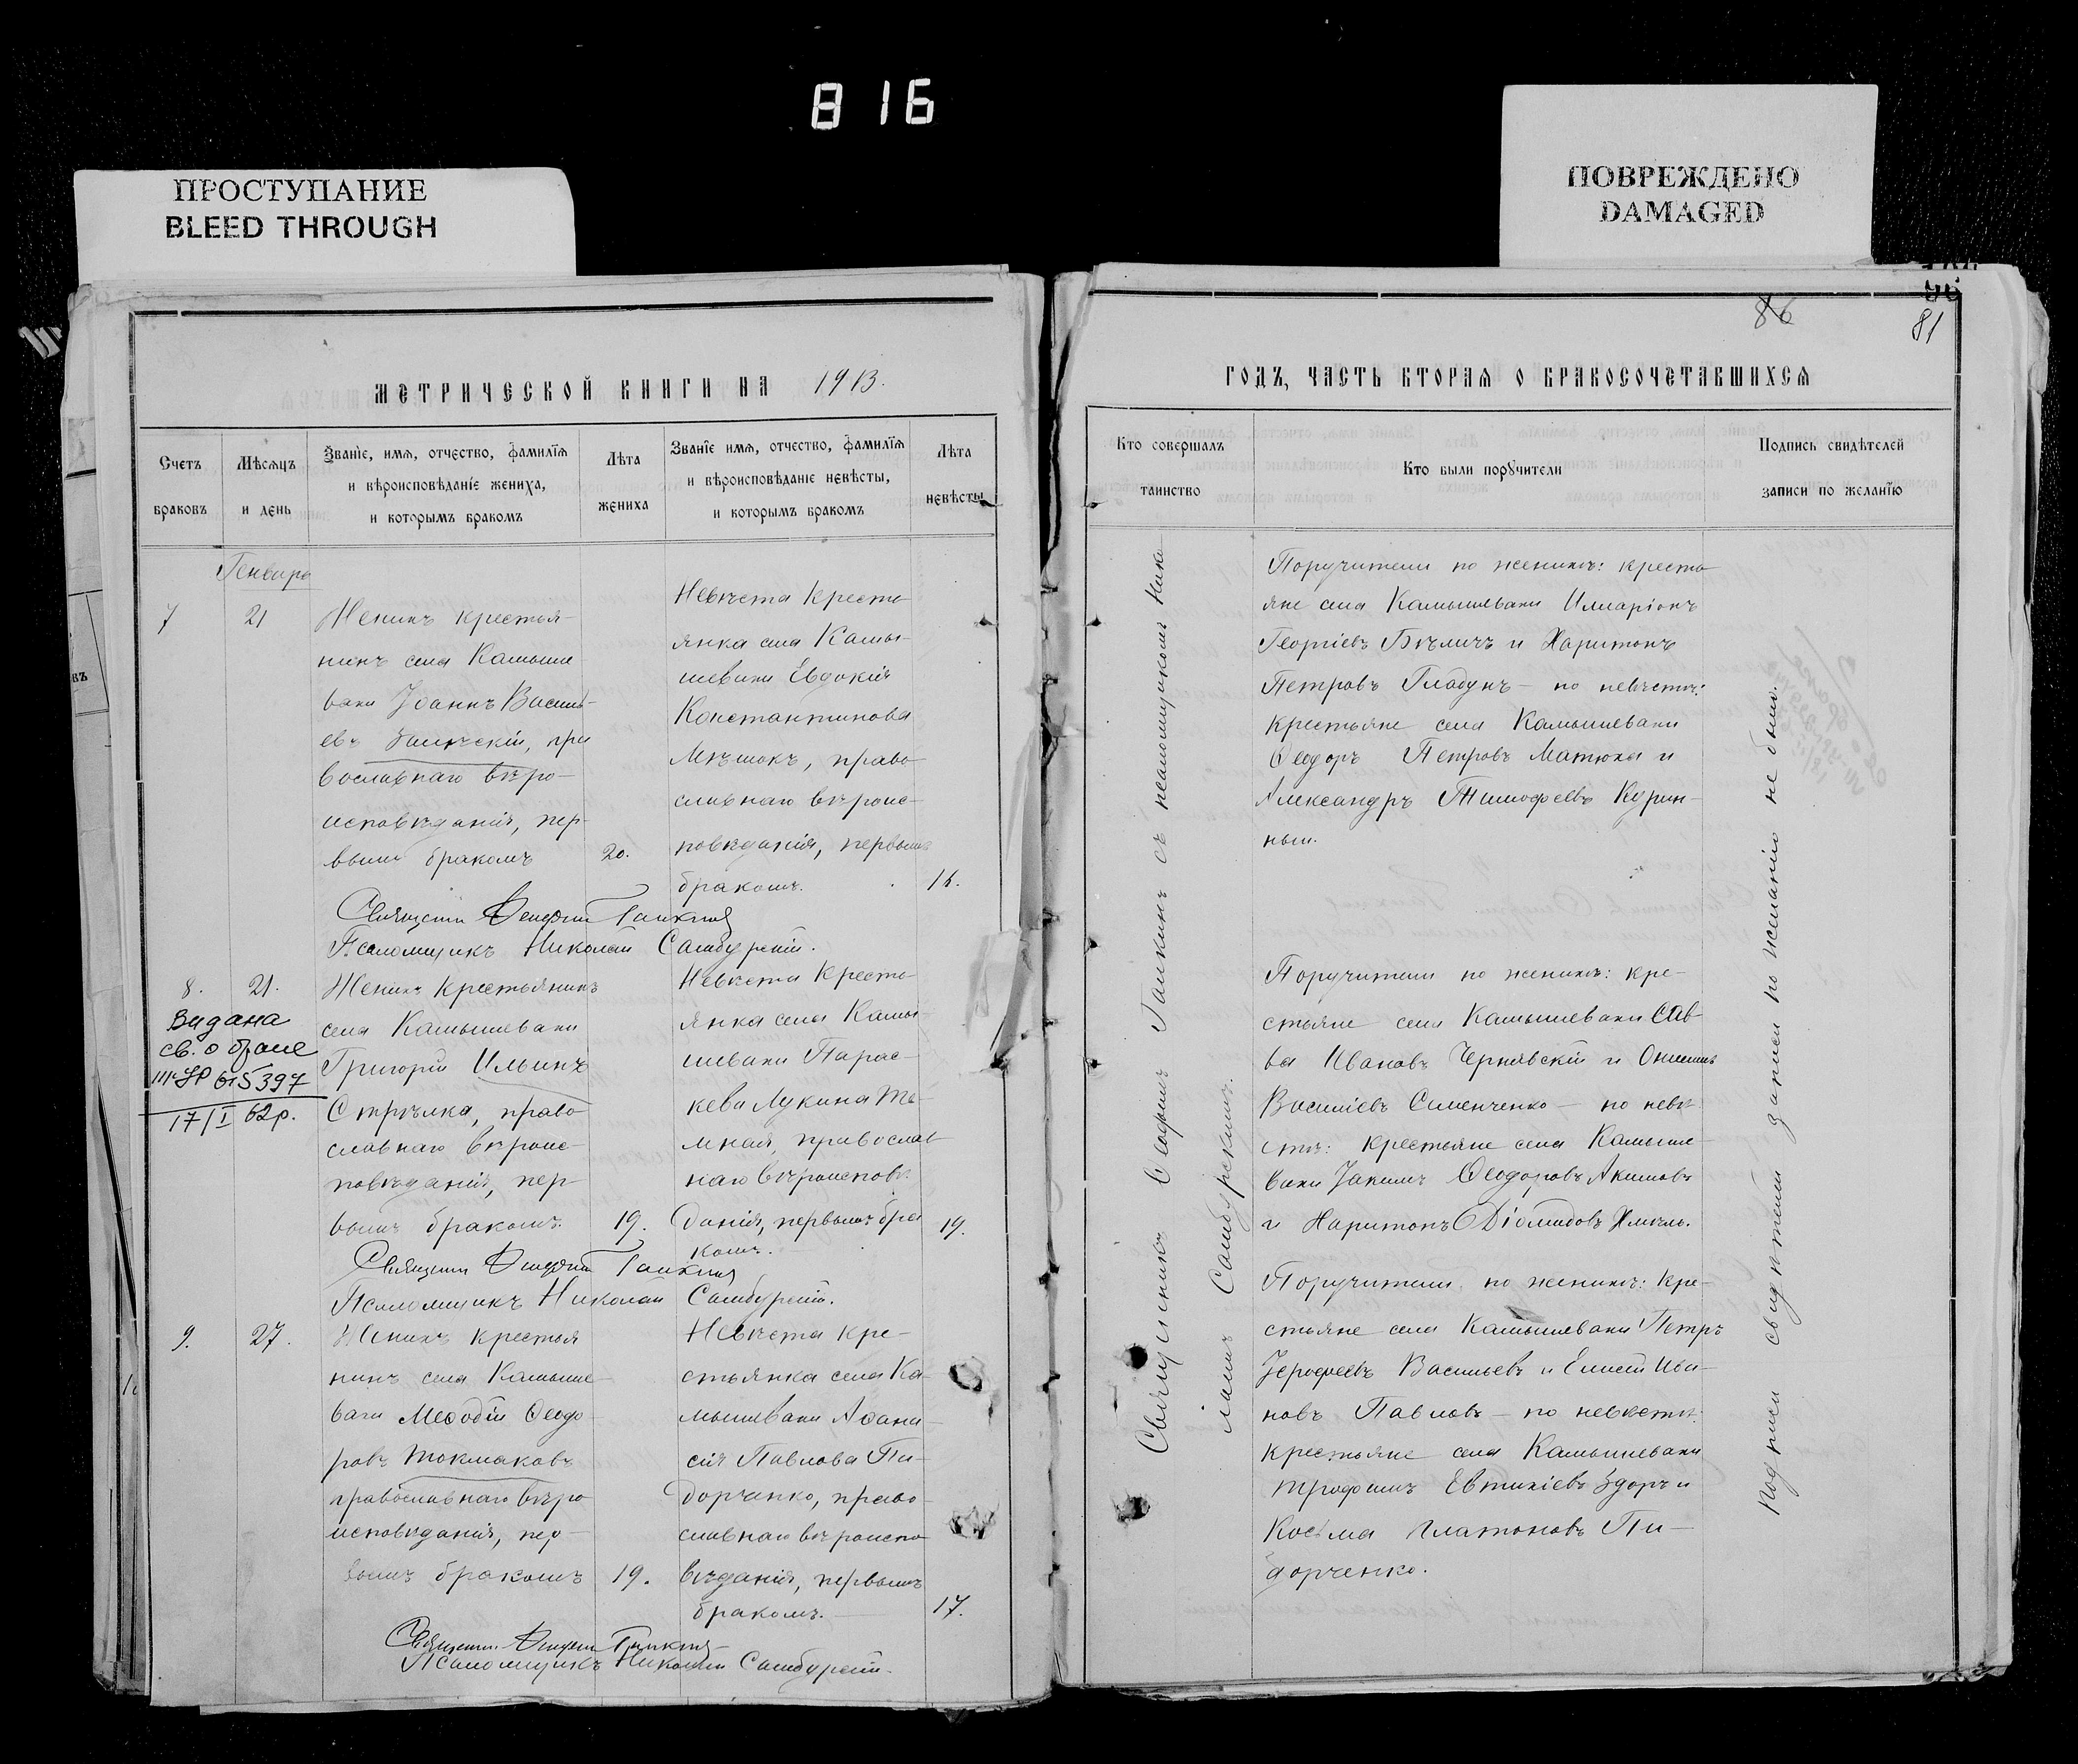 816
ПРОСТУПАНИЕ
BLEED THROUGH
ПОВРЕЖДЕНО
DAMAGED
МЕТРИЧЕСКОЙ КНИГИ НА 1913.
Счетъ
браковъ
Мѣсяцъ
и день
Званіе, имя, отчество, фамилія
и вѣроисповѣданіе жениха,
и которымъ бракомъ
Лѣта
жениха
Званіе имя, отчество, фамилія
и вѣроисповѣданіе невѣсты,
и которымъ бракомъ
Лѣта
невѣсты
Генварь
7
21
Женихъ крестья-
нинъ села Камыше
ваки Іоаннъ Василь-
евъ пра
вославнаго вѣро-
исповѣданія, пер-
вымъ бракомъ
20.
Невѣста кресть-
янка села Камы-
шеваки Евдокія
Константинова
Мѣшокъ, право-
славнаго вѣроис-
повѣданія, первымъ
бракомъ.
16.
Священн.
Псаломщикъ Николай Самбурскій.
8.
21.
Видана
св. о браке
615397
17/I 62р.
Женихъ крестьянинъ
села Камышеваки
Григорій Ильинъ
Стрѣлка, право
славнаго вѣроис-
повѣданія, пер-
вымъ бракомъ.
19.
Невѣста кресть-
янка села Камы-
шеваки Парас-
кева Лукина Те-
мная, православ
наго вѣроисповѣ-
данія, первымъ бра
комъ.
19.
Священн.
Псаломщикъ Николай Самбурскій.
9.
27.
Женихъ крестья
нинъ села Камыше-
ваки Меѳодій Ѳеодо-
ровъ Токмаковъ
православнаго вѣро
исповѣданія, пер-
вымъ бракомъ
19.
Невѣста кре-
стьянка села Ка-
мышеваки Аѳана-
сія Павлова Пи-
дорченко, право-
славнаго вѣроиспо
вѣданія, первымъ
бракомъ.
17.
Священн.
Псаломщикъ Николай Самбурскій.
86
81
ГОДЪ, ЧАСТЬ ВТОРАЯ О БРАКОСОЧЕТАВШИХСЯ
Кто совершалъ
таинство
Кто были поручители
Подпись свидѣтелей
записи по желанію
Священникъ съ псаломщикомъ Нико
лаемъ Самбурскимъ.
Поручители по женихѣ: кресть
яне села Камышеваки Илларіонъ
Георгіевъ Бѣличъ и Харитонъ
Петровъ Гладунъ - по невѣстѣ:
крестьяне села Камышеваки
Ѳеодоръ Петровъ Матюха и
Александръ Тимофеевъ Курин-
ный.
Поручители по женихѣ: кре-
стьяне села Камышеваки Сав-
ва Ивановъ Чернявскій и Онисимъ
Василіевъ Семенченко - по невѣ-
стѣ: крестьяне села Камыше-
ваки Іакимъ Ѳеодоровъ Акимовъ
и Харитонъ Діомидовъ Хмель.
Поручители по женихѣ: кре-
стьяне села Камышеваки Петръ
Іерофеевъ Васильевъ и Елисей Ива-
новъ Павловъ - по невѣстѣ:
крестьяне села Камышеваки
Трофимъ Евтихіевъ Здоръ и
Косьма Платоновъ Пи-
дорченко.
Подписи свидѣтелей записи по желанію не было.